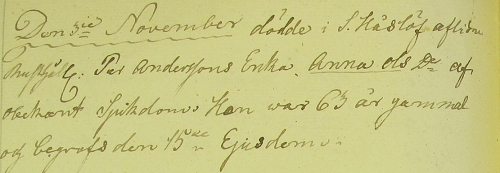 Den 3ie November dödde i S. Håslöf aflidne
Pär Anderssons Enka, Anna Ols Dr af
obekant Sjukdom. Hon war 63 år gammal
og begrafs den 15de Ejusdem.